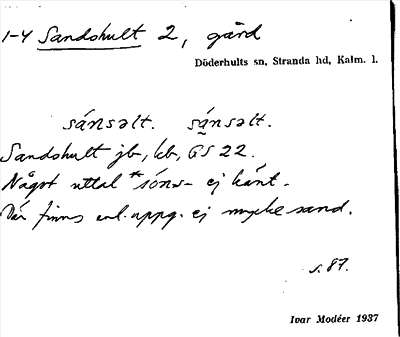 1-4 Sandshult 2, gård
Döderhults sn, Stranda hd, Kalm. l.
sánsəlt. sánsəlt.
Sandshult jb, kb, GS 22.
Något uttal *sóns- ej känt.
Där finns enl. uppg. ej mycke sand.
s. 87.
Ivar Modéer 1937